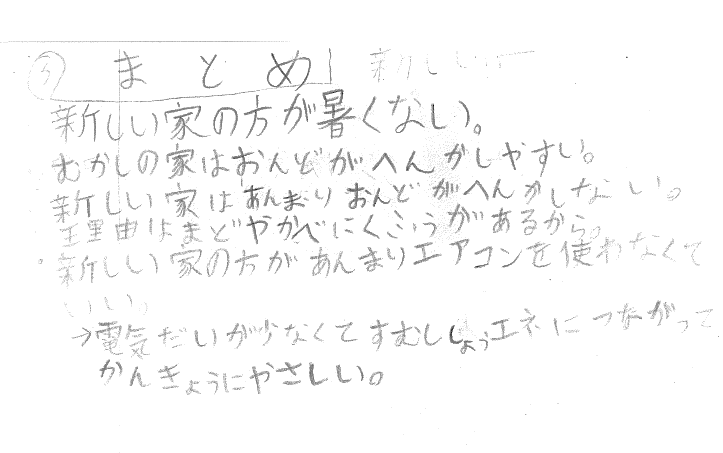 ③ まとめ 新しい
新しい家の方が暑くない。
むかしの家はおんどがへんかしやすい。
新しい家はあんまりおんどがへんかしない。
理由はまどやかべにくふうがあるから。
新しい家の方があんまりエアコンを使わなくて
いい。
→電気だいが少なくてすむししょうエネにつながって
かんきょうにやさしい。